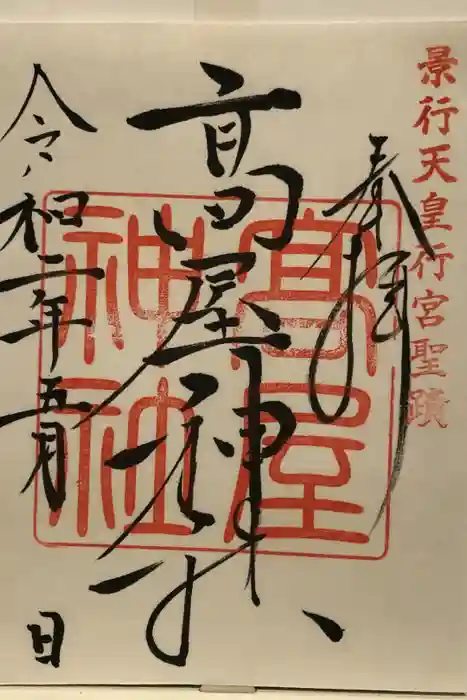 景行天皇行宮聖蹟
奉拝
高屋神社
高屋神社
令和二年五月 日